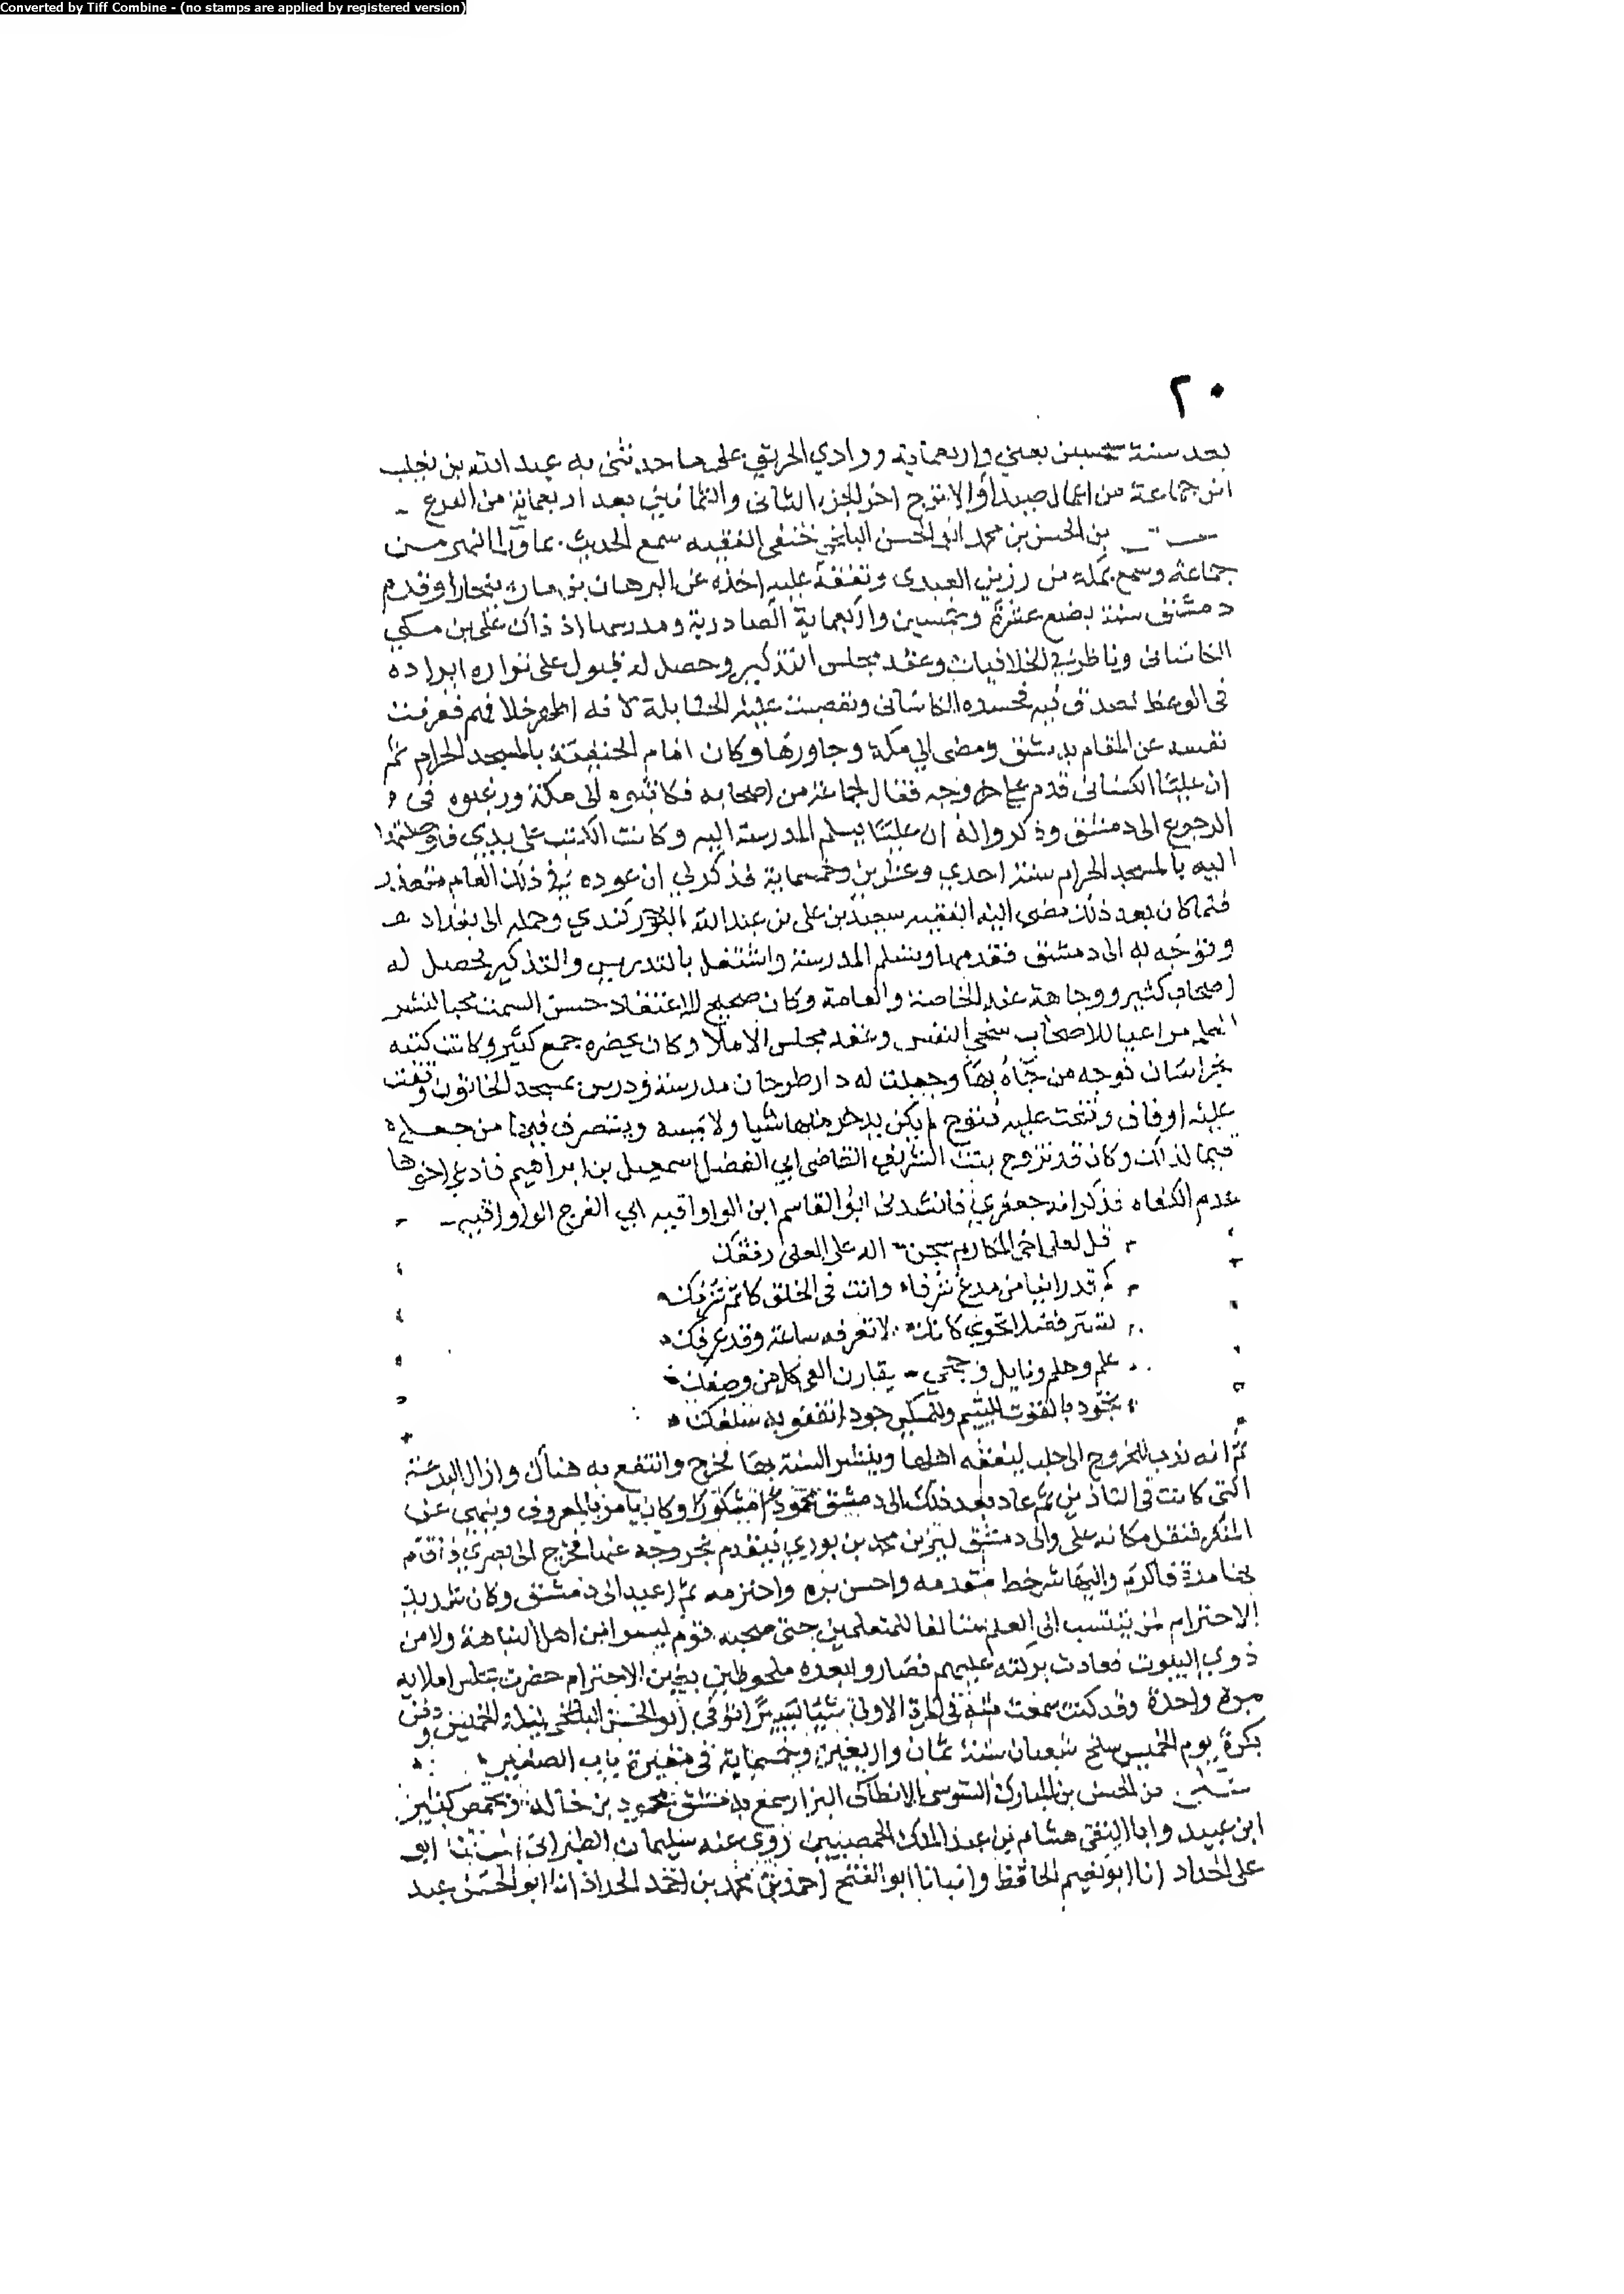 Converted by Tiff Combine - (no stamps are applied by registered version)
٢٠
بعد سنة خمسين يعني واربعماية ووادي الحريق على ما حدثني به عبد الله بن
ابن جماعة من اعمال صيدا اخر الجزء الثاني والثمانين بعد اربعماية من الفرع
بن الحسن بن محمد ابو الحسن البلخي الحنفي الفقيه سمع الحديث بماورا النهر من
جماعة وسمع بمكة من رزين العبدري وتفقه عليه اخذه عن البرهان بن ببخارا وقدم
دمشق سنة بضع عشرة وخمسين واربعماية الصادرية ومدرسها اذ ذاك علي بن مكي
الكاساني وناظر في الخلافيات وعقد مجلس التذكير وحصل له قبول على ايراده
في الوعظ لصدق فيه فحسده الكاساني وتعصبت عليه الحنابلة لانه اظهر خلافهم فعزفت
نفسه عن المقام بدمشق ومضى الي مكة وجاور بها وكان امام الحنفية بالمسجد الحرام ثم
ان عليا الكساني قدم على خروجه فقال لجماعة من اصحابه فكاتبوه الى مكة ورغبوه في
الرجوع الى دمشق وذكروا له ان عليا يسلم المدرسة اليه وكانت الكتب على يدي فاوصلتها
اليه بالمسجد الحرام سنة احدي وعشرين وخمسماية فذكر لي ان عوده في ذلك العام متعذر
فلما كان بعد ذلك مضى اليه الفقيه سعيد بن علي بن عبد الله وحمله الى بغداد
وتوجه به الى دمشق فقدمها وتسلم المدرسة واشتغل بالتدريس والتذكير فحصل له
اصحاب كثير ووجاهة عند الخاصة والعامة وكان صحيح الاعتقاد حسن السمت محبا لنشر
العلم مراعيا للاصحاب سخي النفس وعقد مجلس الاملا وكان يحضره جمع كثير وكانت كتبه
بخراسان فوجه من جاه بها وجعلت له دار طرخان مدرسة ودرس بمسجد الخاتون وقفت
عليه اوقاف وفتحت عليه فتوح لم يكن يدخر منها شيا ولا يمسه ويتصرف فيها من جعله
قيما لذلك وكان قد تزوج بنت الشريف القاضي ابي الفضل اسمعيل بن ابراهيم فادعى اخوها
عدم الكفاه فذكر انه جعفري فانشدني ابو القاسم ابن الواواقيه ابي الفرج الواواقيه
قل لعلي اخي المكارم اله على العلى رفعك
كم قد راينا من مدع شرفا وانت في الخلق كاتم شرفك
تستر فضلا تحوي كانك لا تعرفه ساعة وقد عرفك
علم وحلم ونايل وحجى يقارن العي كل من وصفك
تجود بالقوت لليتيم وللمسكين جودا تقفو به سلفك
ثم انه ندب للخروج الى حلب ليفقه اهلها وينشر السنة بها فخرج وانتفع به هناك وازال البدعة
التي كانت في التاذين ثم عاد بعد ذلك الى دمشق محمودا مشكورا وكان يامر بالمعروف وينهى عن
المنكر فثقل مكانه على والى دمشق محمد بن بوري فتقدم بخروجه عنها فخرج الى بصرى فاقام
بها مدة فاكرم واليها مقدمه واحسن بره واحترمه ثم اعيد الى دمشق وكان شديد
الاحترام لمن ينتسب الى العلم متالفا للمتعلمين حتى صحبه قوم ليسوا من اهل النباهة ولا من
ذوي البيوت فعادت بركته عليهم فصاروا بعده ملحوظين بعين الاحترام حضرت مجلس املايه
مرة واحدة وقد كنت سمعت منه في المرة الاولى شيا يسيرا توفي ابو الحسن البلخي ليلة الخميس ودفن
بكرة يوم الخميس سلخ شعبان سنة ثمان واربعين وخمسماية في مقبرة باب الصغير
بن الحسن بن المبارك السوسي الانطاكي البزار سمع بدمشق محمود بن خالد وبحمص كثير
ابن عبيد وابا التقى هشام بن عبد الملك الحمصيين روى عنه سليمان الطبراني ابو
علي الحداد انا ابو نعيم الحافظ وانبانا ابو الفتح احمد بن محمد بن احمد الحداد انا ابو الحسن عبد